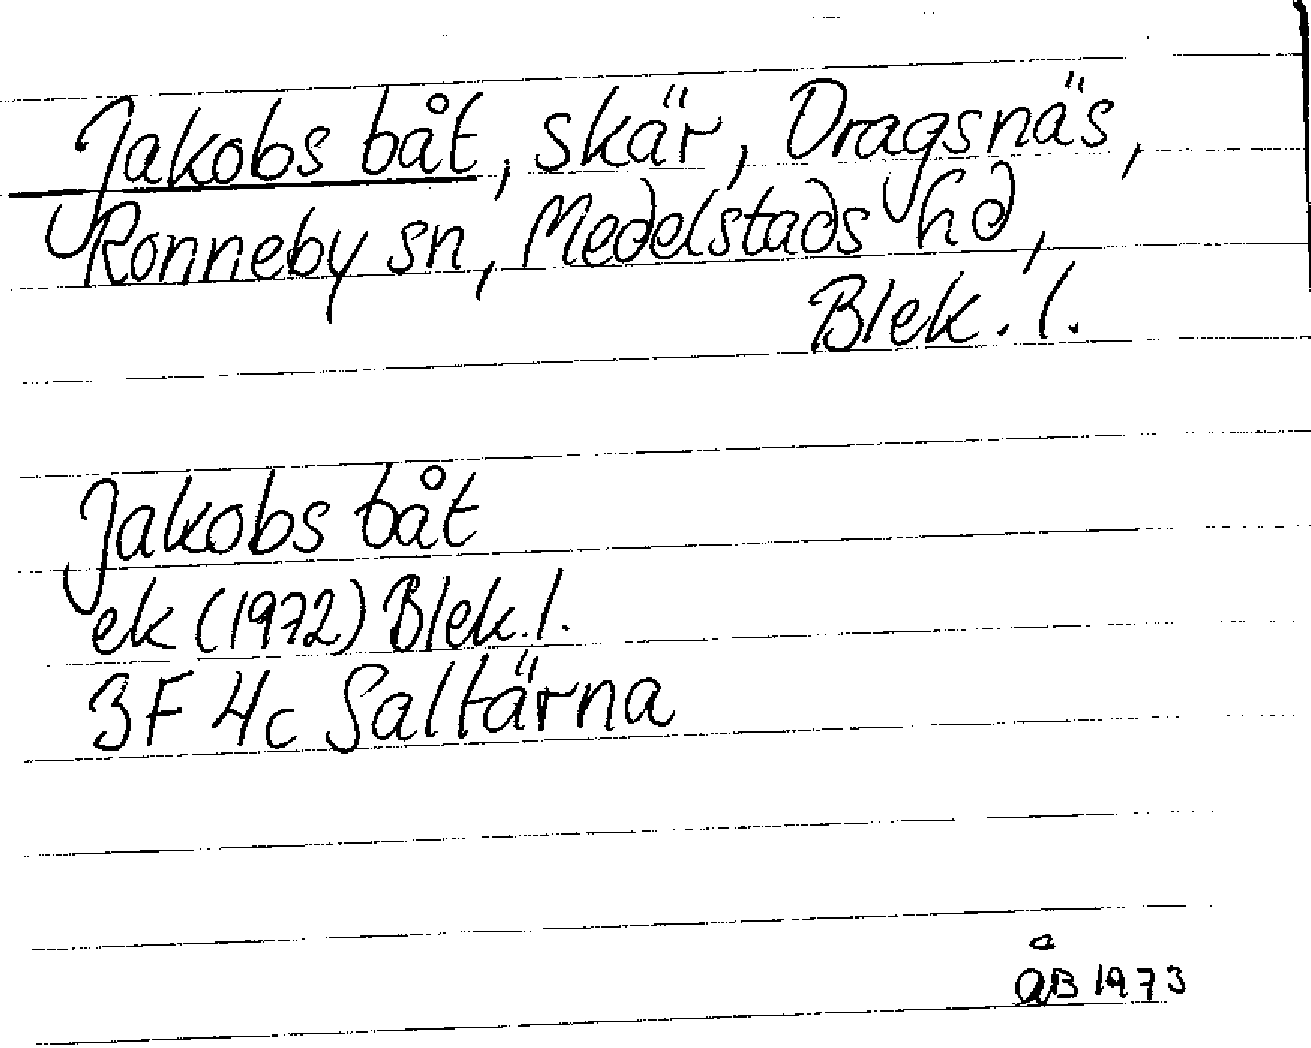 Jakobs båt, skär, Dragsnäs,
Ronneby sn, Medelstads hd,
Blek. l.
Jakobs båt
ek (1972) Blek. l.
3F 4c Saltärna
åB 1973